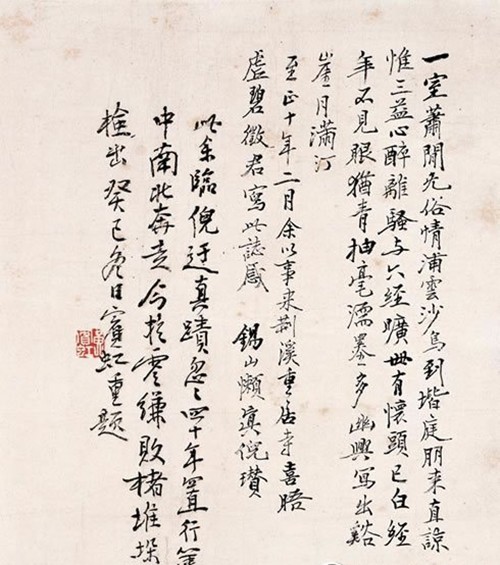 一室蕭閒无俗情浦雲沙鳥到堦庭朋来直諒
惟三益心醉離騷与六經曠世有懷頭已白經
年不見眼猶青抽毫濡墨多幽興写出谿
崖月滿汀
至正十年二月余以事来荆溪重居寺喜晤
虚碧徵君寫此誌感 錫山懶真倪瓚
此余臨倪迂真蹟忽〻四十年置行篋
中南北奔走今於零縑敗楮堆垜
檢出癸巳冬日賓虹重題